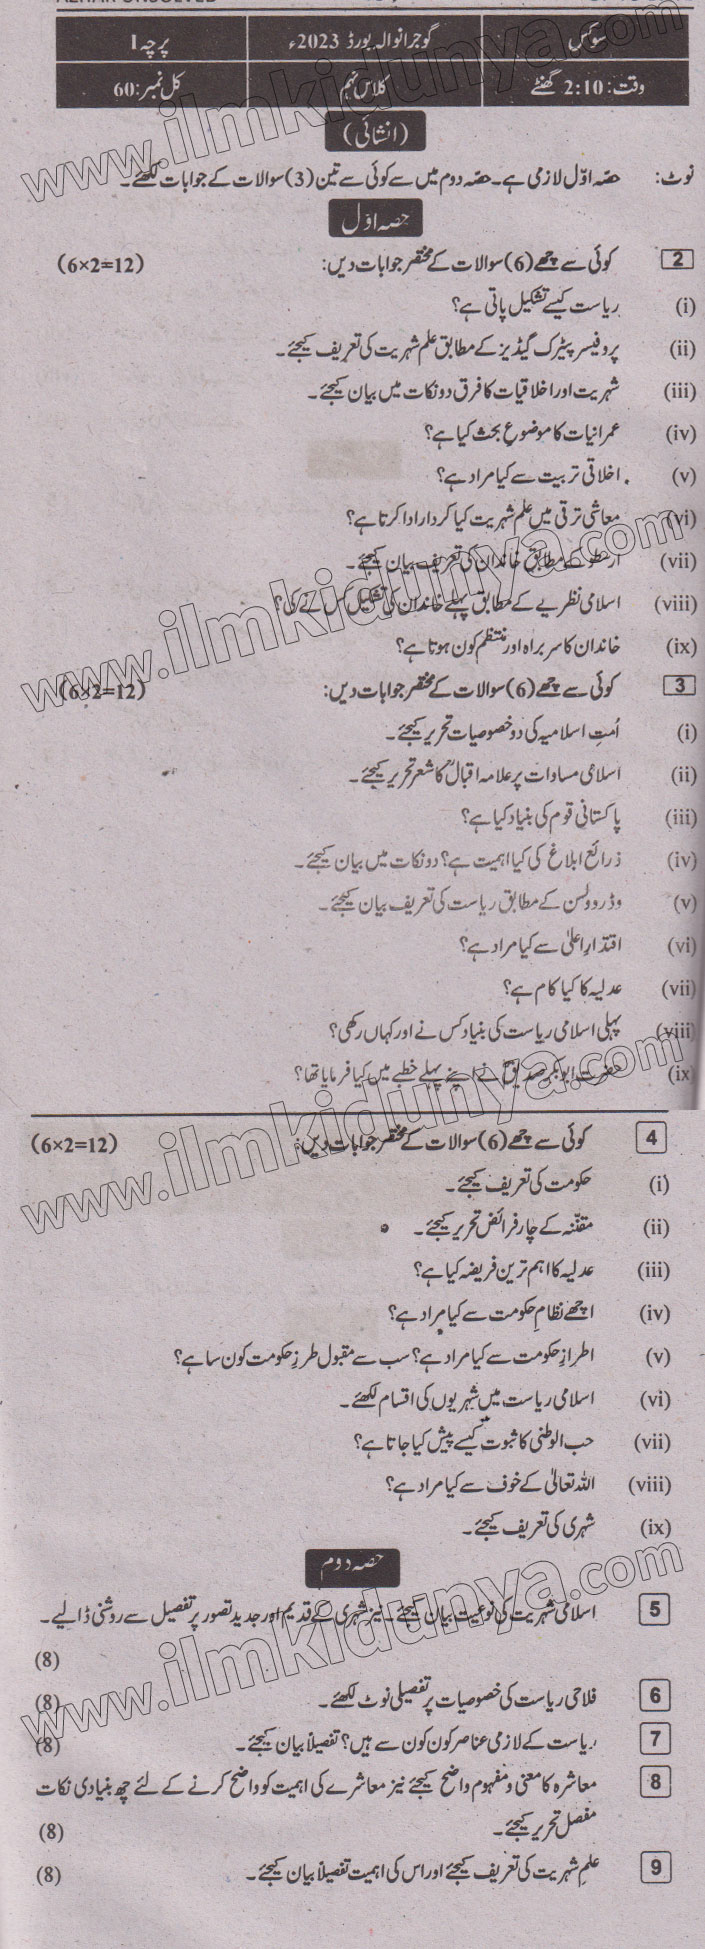 سوکس گوجرانوالہ بورڈ 2023ء پرچہ I
وقت: 2:10 گھنٹے کلاس نہم کل نمبر: 60
(انشائی)
نوٹ: حصہ اوّل لازمی ہے۔ حصہ دوم میں سے کوئی سے تین (3) سوالات کے جوابات لکھئے۔
حصہ اوّل
2 کوئی سے چھے (6) سوالات کے مختصر جوابات دیں: (6×2=12)
(i) ریاست کیسے تشکیل پاتی ہے؟
(ii) پروفیسر پیٹرک گیڈیز کے مطابق علم شہریت کی تعریف کیجئے۔
(iii) شہریت اور اخلاقیات کا فرق دو نکات میں بیان کیجئے۔
(iv) عمرانیات کا موضوعِ بحث کیا ہے؟
(v) اخلاقی تربیت سے کیا مراد ہے؟
(vi) معاشی ترقی میں علم شہریت کیا کردار ادا کرتا ہے؟
(vii) ارسطو کے مطابق خاندان کی تعریف بیان کیجئے۔
(viii) اسلامی نظریے کے مطابق پہلے خاندان کی تشکیل کس نے کی؟
(ix) خاندان کا سربراہ اور منتظم کون ہوتا ہے؟
3 کوئی سے چھے (6) سوالات کے مختصر جوابات دیں: (6×2=12)
(i) اُمتِ اسلامیہ کی دو خصوصیات تحریر کیجئے۔
(ii) اسلامی مساوات پر علامہ اقبالؒ کا شعر تحریر کیجئے۔
(iii) پاکستانی قوم کی بنیاد کیا ہے؟
(iv) ذرائع ابلاغ کی کیا اہمیت ہے؟ دو نکات میں بیان کیجئے۔
(v) وڈرو ولسن کے مطابق ریاست کی تعریف بیان کیجئے۔
(vi) اقتدارِ اعلیٰ سے کیا مراد ہے؟
(vii) عدلیہ کا کیا کام ہے؟
(viii) پہلی اسلامی ریاست کی بنیاد کس نے اور کہاں رکھی؟
(ix) حضرت ابوبکر صدیقؓ نے اپنے پہلے خطبے میں کیا فرمایا تھا؟
4 کوئی سے چھے (6) سوالات کے مختصر جوابات دیں: (6×2=12)
(i) حکومت کی تعریف کیجئے۔
(ii) مقننّہ کے چار فرائض تحریر کیجئے۔
(iii) عدلیہ کا اہم ترین فریضہ کیا ہے؟
(iv) اچھے نظامِ حکومت سے کیا مراد ہے؟
(v) اطرازِ حکومت سے کیا مراد ہے؟ سب سے مقبول طرزِ حکومت کون سا ہے؟
(vi) اسلامی ریاست میں شہریوں کی اقسام لکھئے۔
(vii) حب الوطنی کا ثبوت کیسے پیش کیا جاتا ہے؟
(viii) اللہ تعالیٰ کے خوف سے کیا مراد ہے؟
(ix) شہری کی تعریف کیجئے۔
حصہ دوم
5 اسلامی شہریت کی نوعیت بیان کیجئے۔ نیز شہری کے قدیم اور جدید تصور پر تفصیل سے روشنی ڈالیے۔
(8)
6 فلاحی ریاست کی خصوصیات پر تفصیلی نوٹ لکھئے۔ (8)
7 ریاست کے لازمی عناصر کون کون سے ہیں؟ تفصیلاً بیان کیجئے۔ (8)
8 معاشرہ کا معنی و مفہوم واضح کیجئے نیز معاشرے کی اہمیت کو واضح کرنے کے لئے چھ بنیادی نکات
مفصل تحریر کیجئے۔ (8)
9 علمِ شہریت کی تعریف کیجئے اور اس کی اہمیت تفصیلاً بیان کیجئے۔ (8)
www.ilmkidunya.com
www.ilmkidunya.com
www.ilmkidunya.com
www.ilmkidunya.com